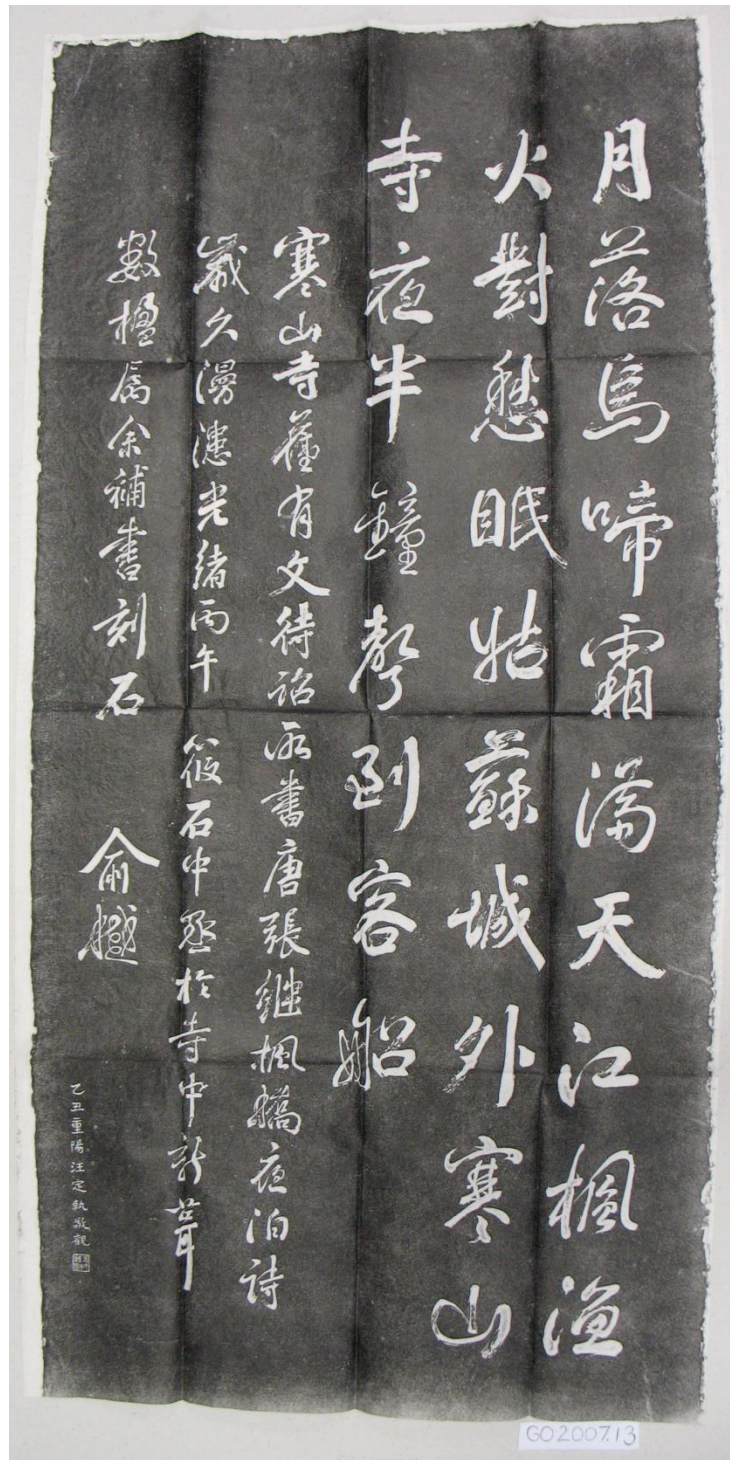 月落烏啼霜滿天江楓漁
火對愁眠姑蘇城外寒山
寺夜半鐘聲到客船
寒山寺舊有文待詔所書唐張繼楓橋夜泊詩
歲久漫漶光緒丙午 筱石中丞於寺中新葺
數楹屬余補書刻石 俞樾
乙丑重陽汪定執敬觀
GO2007.13